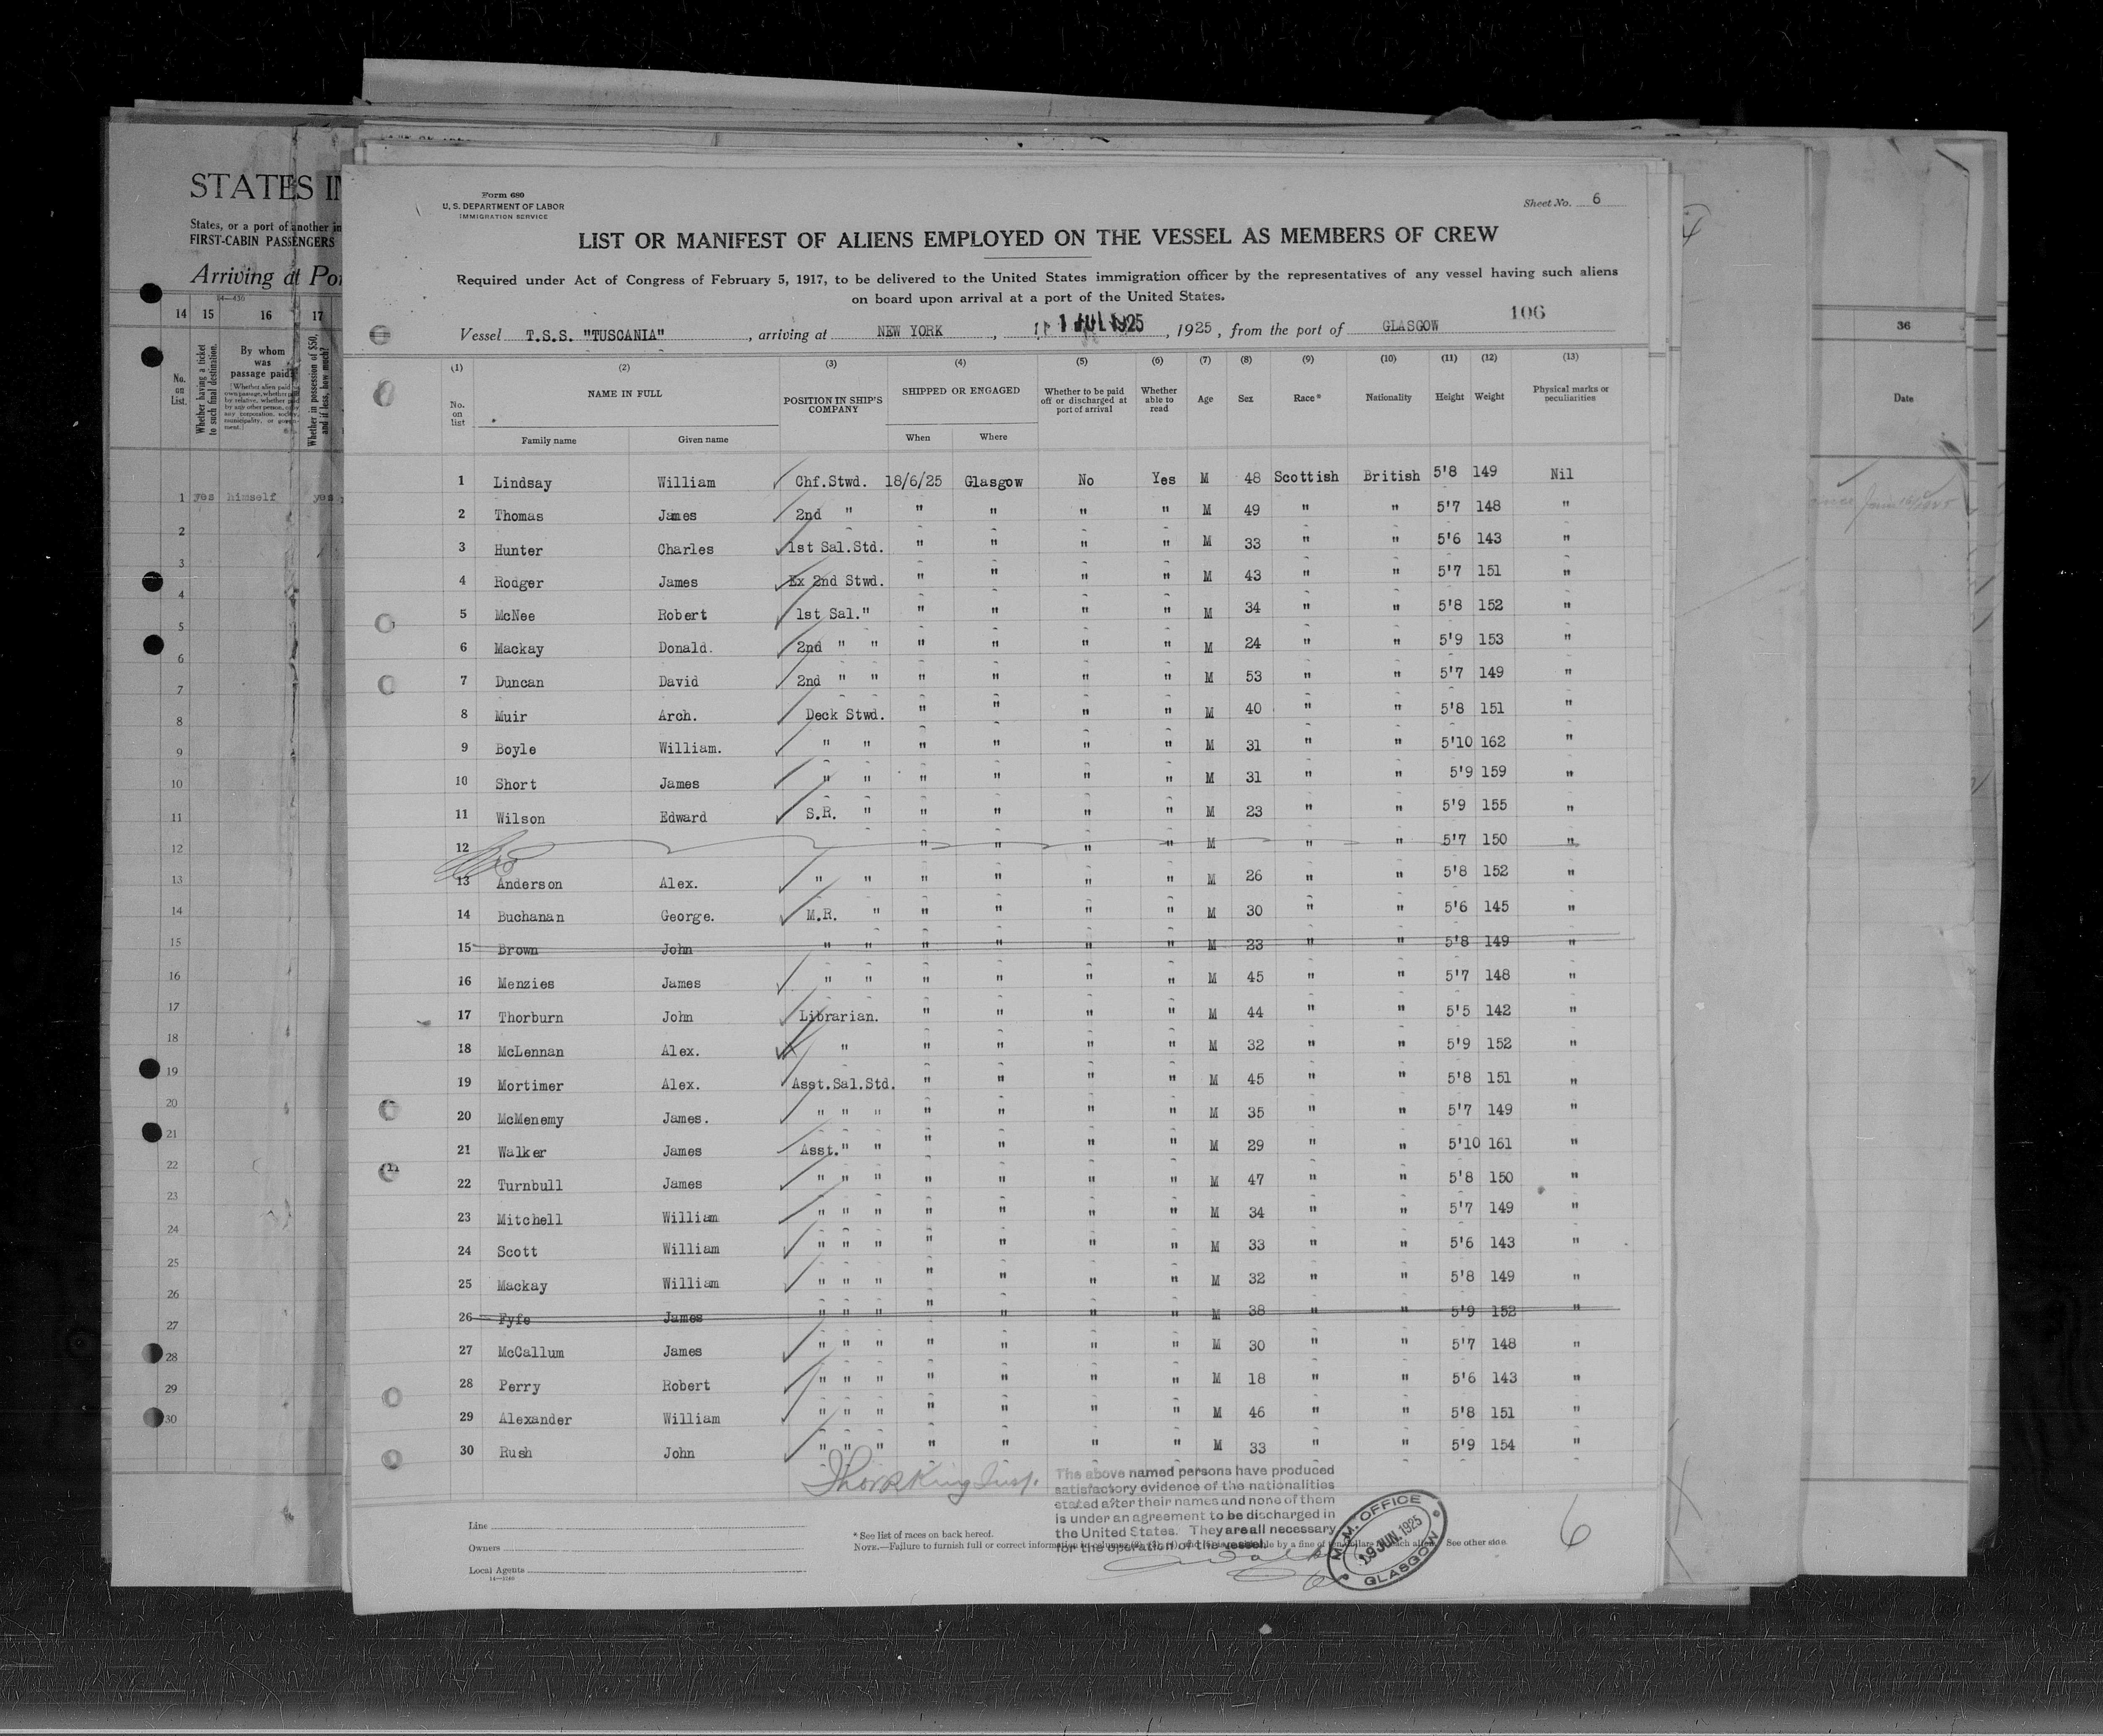 STATES I
States, or a port of another in
FIRST-CABIN PASSENGERS
Arriving at Po
14 15 16 17
No. on List.
Whether having a ticket to such final destination.
By whom was passage paid?
Whether in possession of $50, and if less, how much?
1 yes himself yes
2
3
4
5
6
7
8
9
10
11
12
13
14
15
16
17
18
19
20
21
22
23
24
25
26
27
28
29
30
Form 680
U. S. DEPARTMENT OF LABOR
IMMIGRATION SERVICE
Sheet No. 6
LIST OR MANIFEST OF ALIENS EMPLOYED ON THE VESSEL AS MEMBERS OF CREW
Required under Act of Congress of February 5, 1917, to be delivered to the United States immigration officer by the representatives of any vessel having such aliens
on board upon arrival at a port of the United States.
106
Vessel T.S.S. "TUSCANIA", arriving at NEW YORK, 1 JUL 1925, 1925, from the port of GLASGOW
(1) (2) (3) (4) (5) (6) (7) (8) (9) (10) (11) (12) (13)
No. on list
NAME IN FULL
Family name Given name
POSITION IN SHIP'S COMPANY
SHIPPED OR ENGAGED
When Where
Whether to be paid off or discharged at port of arrival
Whether able to read
Age Sex Race* Nationality Height Weight
Physical marks or peculiarities
1 Lindsay William Chf.Stwd. 18/6/25 Glasgow No Yes M 48 Scottish British 5'8 149 Nil
2 Thomas James 2nd " " " " " M 49 " " 5'7 148 "
3 Hunter Charles 1st Sal.Std. " " " " M 33 " " 5'6 143 "
4 Rodger James Ex 2nd Stwd. " " " " M 43 " " 5'7 151 "
5 McNee Robert 1st Sal." " " " " M 34 " " 5'8 152 "
6 Mackay Donald. 2nd " " " " " " M 24 " " 5'9 153 "
7 Duncan David 2nd " " " " " " M 53 " " 5'7 149 "
8 Muir Arch. Deck Stwd. " " " " M 40 " " 5'8 151 "
9 Boyle William. " " " " " " M 31 " " 5'10 162 "
10 Short James " " " " " " M 31 " " 5'9 159 "
11 Wilson Edward S.R. " " " " " M 23 " " 5'9 155 "
12 " " " " M " " 5'7 150 "
13 Anderson Alex. " " " " " " M 26 " " 5'8 152 "
14 Buchanan George. M.R. " " " " " M 30 " " 5'6 145 "
15 Brown John " " " " " " M 23 " " 5'8 149 "
16 Menzies James " " " " " " M 45 " " 5'7 148 "
17 Thorburn John Librarian. " " " " M 44 " " 5'5 142 "
18 McLennan Alex. " " " " " M 32 " " 5'9 152 "
19 Mortimer Alex. Asst.Sal.Std. " " " " M 45 " " 5'8 151 "
20 McMenemy James. " " " " " " " M 35 " " 5'7 149 "
21 Walker James Asst." " " " " " M 29 " " 5'10 161 "
22 Turnbull James " " " " " " " M 47 " " 5'8 150 "
23 Mitchell William " " " " " " " M 34 " " 5'7 149 "
24 Scott William " " " " " " " M 33 " " 5'6 143 "
25 Mackay William " " " " " " " M 32 " " 5'8 149 "
26 Fyfe James " " " " " " " M 38 " " 5'9 152 "
27 McCallum James " " " " " " " M 30 " " 5'7 148 "
28 Perry Robert " " " " " " " M 18 " " 5'6 143 "
29 Alexander William " " " " " " " M 46 " " 5'8 151 "
30 Rush John " " " " " " " M 33 " " 5'9 154 "
The above named persons have produced
satisfactory evidence of the nationalities
stated after their names and none of them
is under an agreement to be discharged in
the United States. They are all necessary
for the operation of the vessel.
Line
Owners
Local Agents
14—1240
* See list of races on back hereof.
NOTE.—Failure to furnish full or correct information by a fine of ten dollars for each alien. See other side.
M.M. OFFICE
19 JUN. 1925
GLASGOW
6
36
Date